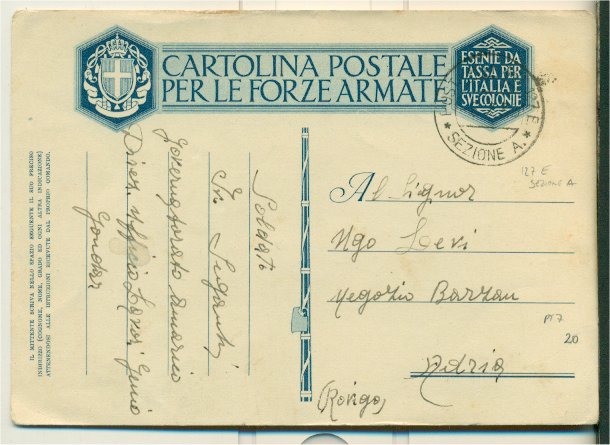 CARTOLINA POSTALE
PER LE FORZE ARMATE
ESENTE DA
TASSA PER
L'ITALIA E
SVE COLONIE
127 E
* SEZIONE A. *
127 E
SEZIONE A
Al Signor
Ugo Levi
Negozio Barzan
Adria
(Rovigo)
P17
20
Soldato
Governatorato Amarico
Direz. Ufficio Lavori Genio
Gondar
IL MITTENTE SCRIVA NELLO SPAZIO SEGUENTE IL SUO PRECISO
INDIRIZZO (COGNOME, NOME, GRADO ED OGNI ALTRA INDICAZIONE)
ATTENENDOSI ALLE ISTRUZIONI RICEVUTE DAL PROPRIO COMANDO.